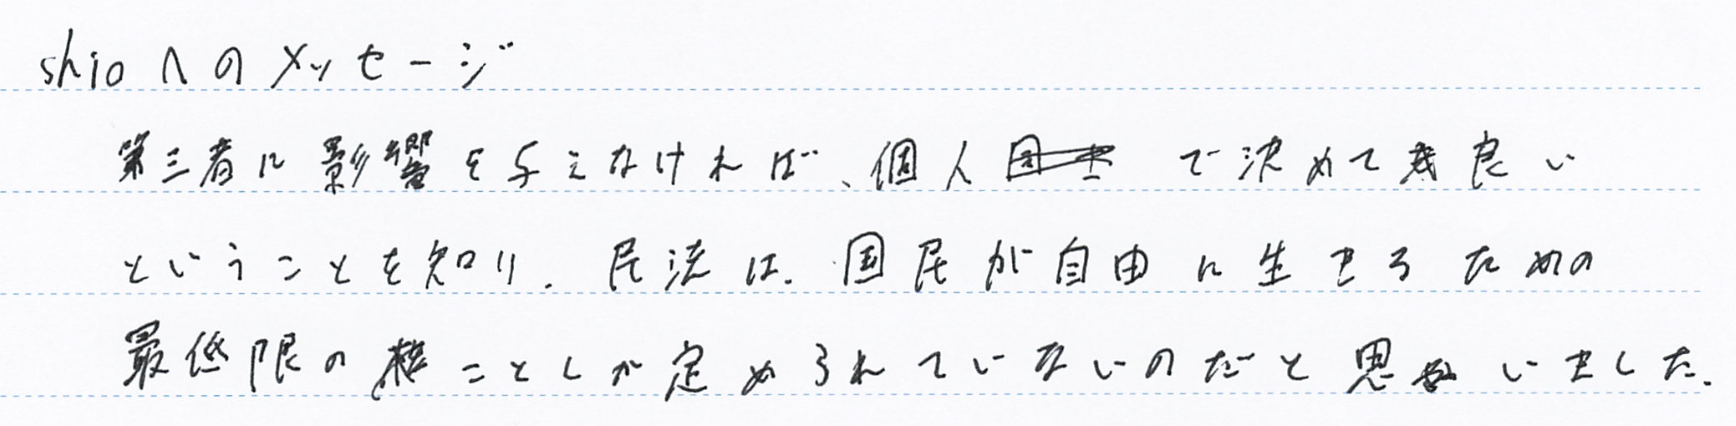 shioへのメッセージ
第三者に影響を与えなければ、個人で決めて良い
ということを知り、民法は、国民が自由に生きるための
最低限のことしか定められていないのだと思いました。